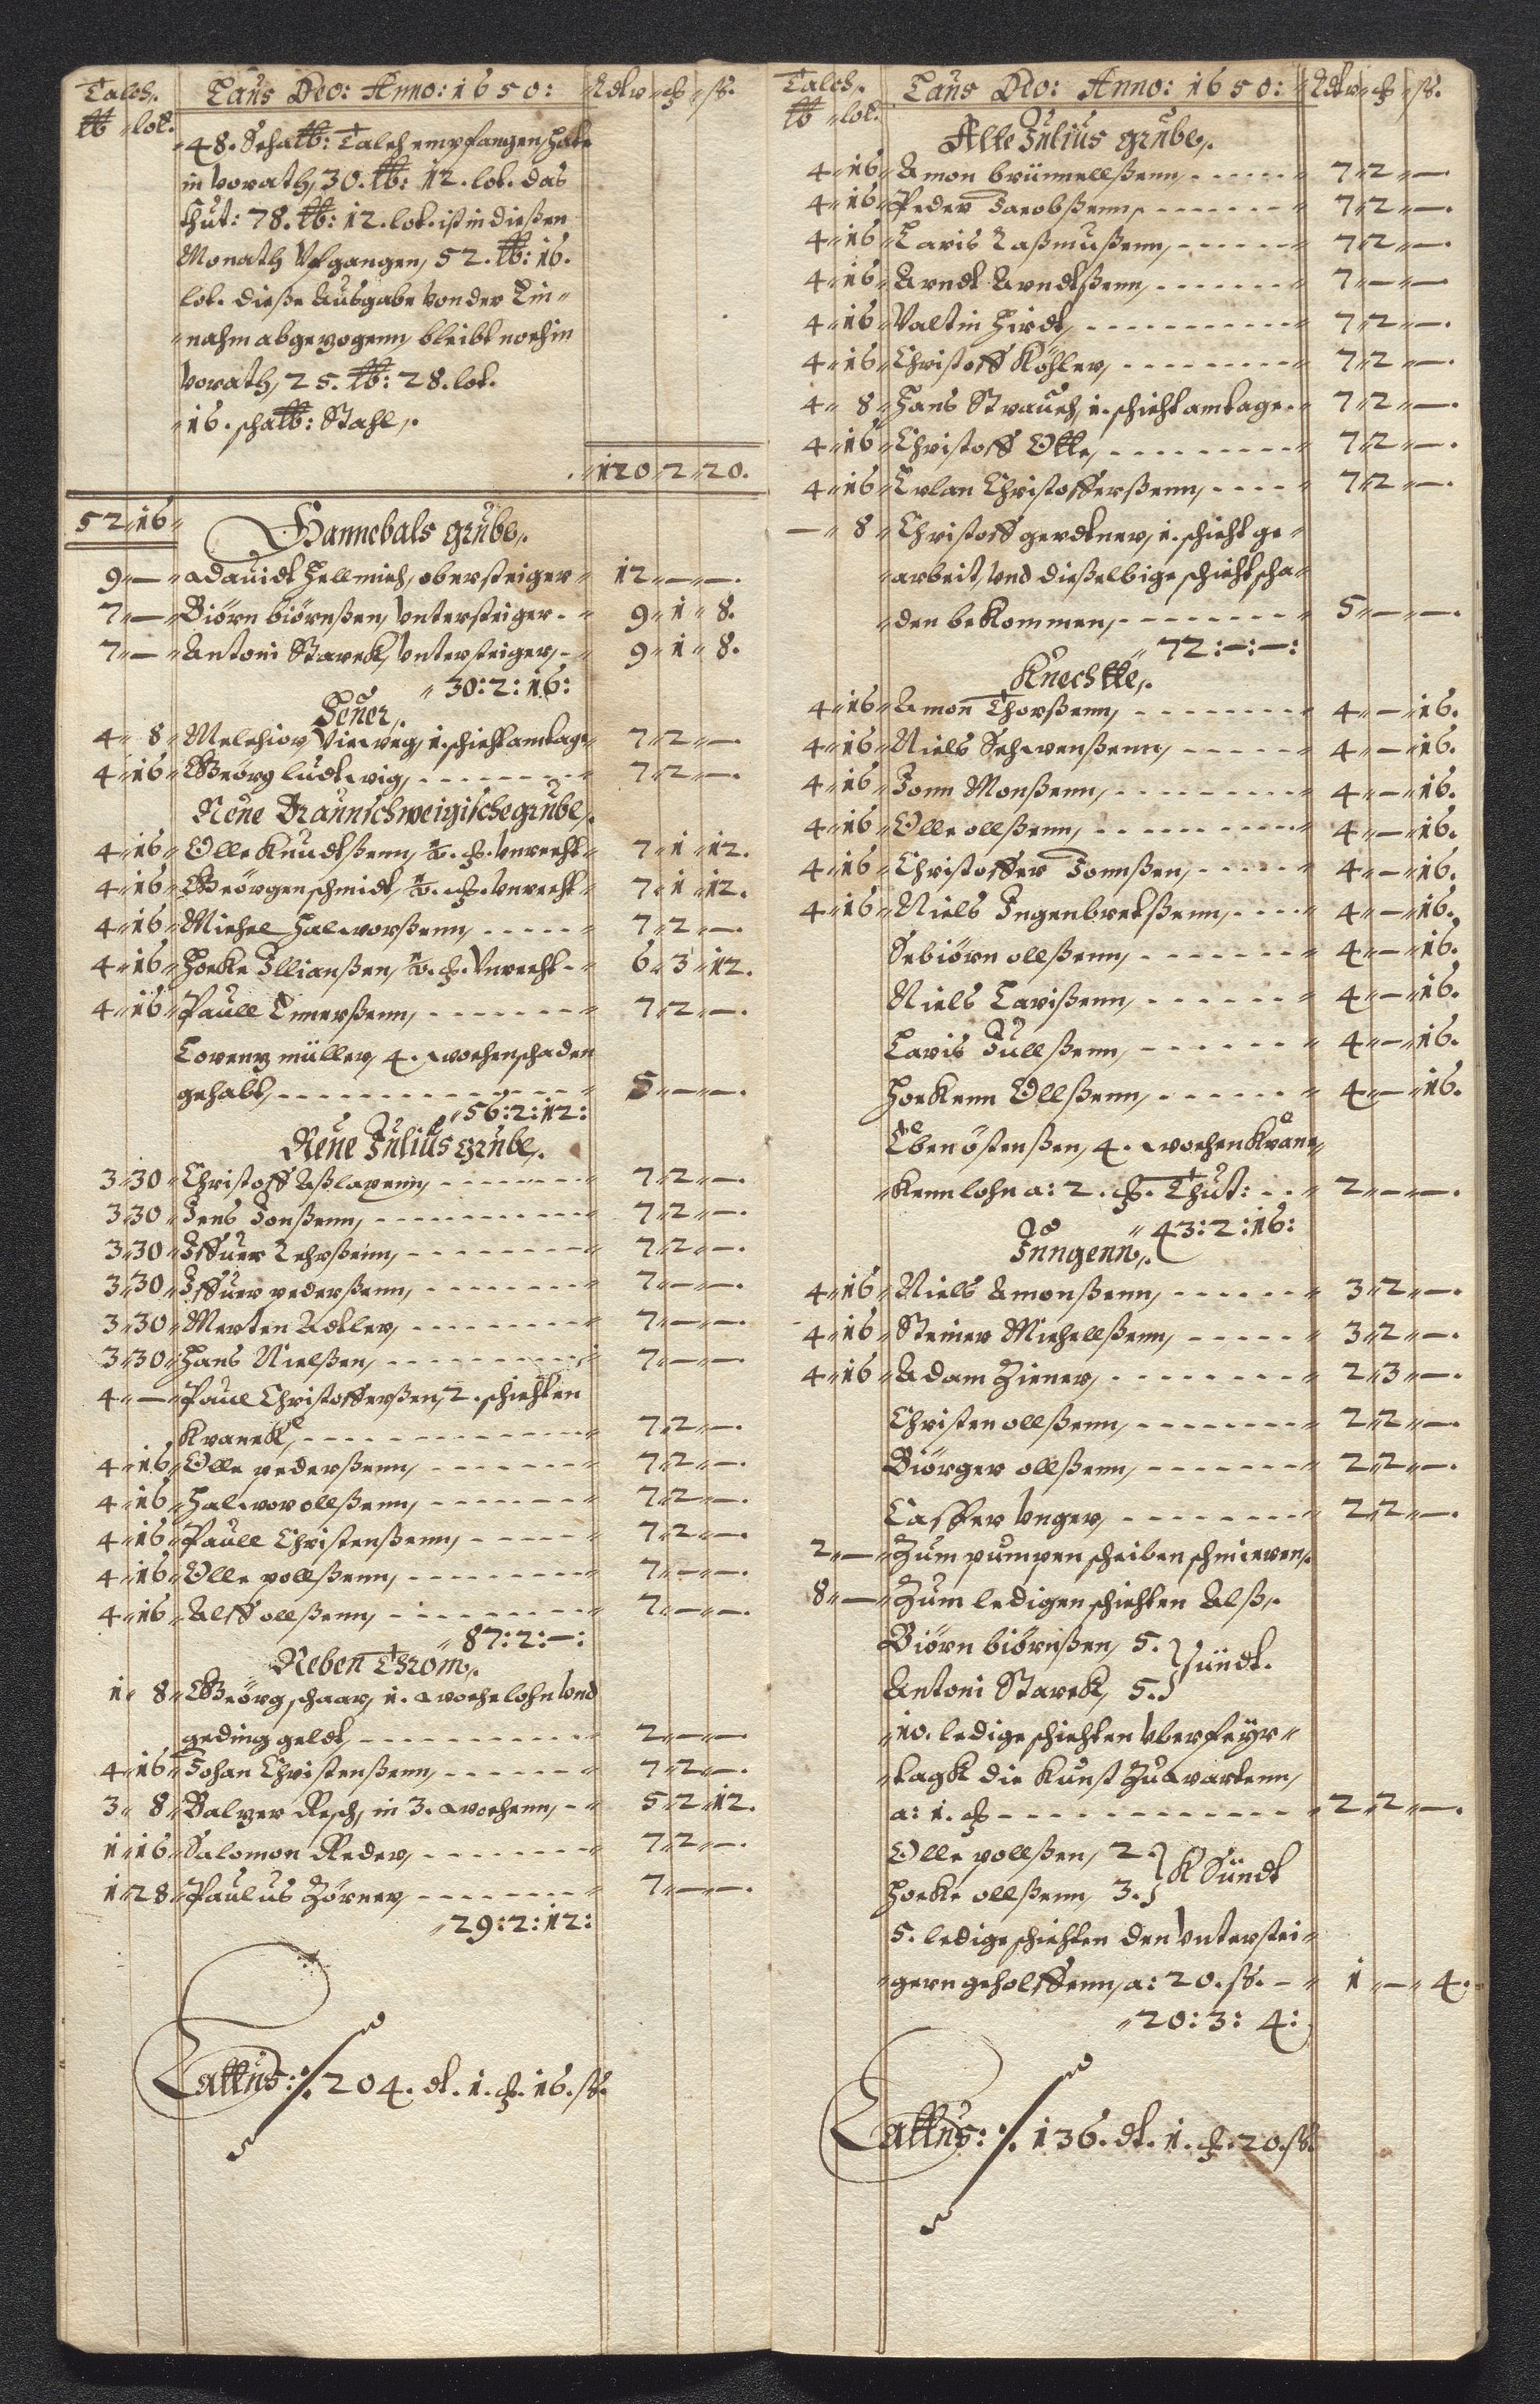 Talch. Laus Deo: Anno: 1650: Rdlr ƶ ß.
℔ lot.
48. Scha℔: Talch empfangen, hatt
in Vorath, 30. ℔: 12. lot. das
thut: 78. ℔: 12. lot. ist in dießen
Monath Vfgangen, 52. ℔: 16.
lot. dieße Außgabe von der Ein"
"nahm abgezogenn, bleibt noch in
Vorath, 25. ℔: 28. lot.
16. scha℔: Stahl.
120 " 2 " 20.
52 " 16 "
Hannebals grube.
9 " — " Dauidt Hellmich, obersteiger " 12 " — " —.
7 " — " Biörn biörnßen, Vntersteiger - " 9 " 1 " 8.
7 " — " Antoni Starck, Vntersteiger, - " 9 " 1 " 8.
" 30: 2: 16:
4 " 8 " Melchior Vieweg, 1. schicht am tage " 7 " 2 " —.
4 " 16 " Geörg ludtwig, - - - " 7 " 2 " —.
Neue Braunschweigische grube.
4 " 16 " Olle Knudtßenn, ½. ƶ. Vnrecht " 7 " 1 " 12.
4 " 16 " Geörgen schmidt, ½. ƶ. Vnrecht " 7 " 1 " 12.
4 " 16 " Michel Halworßenn, - - - " 7 " 2 " —.
4 " 16 " Hocke Illianßen, ½. ƶ. Vnrecht - " 6 " 3 " 12.
4 " 16 " Paull Einerßenn, - - - " 7 " 2 " —.
Lorenz müller, 4. wochen schaden
gehabt, - - - " 5 " — " —.
" 56: 2: 12:
Neue Julius grube.
3 " 30 " Christoff Aßlaxenn, - - - " 7 " 2 " —.
3 " 30 " Jens Jonßenn, - - - " 7 " 2 " —.
3 " 30 " Iffuer Lehrßenn, - - - " 7 " 2 " —.
3 " 30 " Iffuer pederßenn, - - - " 7 " — " —.
3 " 30 " Merten Adler, - - - " 7 " — " —.
3 " 30 " Hans Nielßen, - - - " 7 " — " —.
4 " — " Paul Christofferßen, 2. schichten
Kranck, - - - " 7 " 2 " —.
4 " 16 " Olle pederßenn, - - - " 7 " 2 " —.
4 " 16 " Halwor ollßenn, - - - " 7 " 2 " —.
4 " 16 " Paull Christenßenn, - - - " 7 " 2 " —.
4 " 16 " Olle pollßenn, - - - " 7 " — " —.
4 " 16 " Alff ollßenn, - - - " 7 " — " —.
" 87: 2: —:
Neben Throm.
1 " 8 " Geörg schaar, 1. woche lohn vnd
geding geldt, - - - " 2 " — " —.
4 " 16 " Johan Christenßenn, - - - " 7 " 2 " —.
3 " 8 " Balzer Resch, in 3. wochenn, - " 5 " 2 " 12.
1 " 16 " Salomon Reder, - - - " 7 " 2 " —.
1 " 28 " Paulus Zörner, - - - " 7 " — " —.
" 29: 2: 12:
Lattus: ⁒ 204. dt. 1. ƶ. 16. ß.
Talch. Laus Deo: Anno: 1650: Rdlr ƶ ß.
℔ lot.
Alte Julius grube.
4 " 16 " Amon brünnellßenn, - - - " 7 " 2 " —.
4 " 16 " Peder Jacobßenn, - - - " 7 " 2 " —.
4 " 16 " Laris Raßmußenn, - - - " 7 " 2 " —.
4 " 16 " Arndt Arndtßenn, - - - " 7 " — " —.
4 " 16 " Valtin Hirdt, - - - " 7 " 2 " —.
4 " 16 " Christoff Köhler, - - - " 7 " 2 " —.
4 " 8 " Hans Strauch, 1. schicht am tage - " 7 " 2 " —.
4 " 16 " Christoff Otte, - - - " 7 " 2 " —.
4 " 16 " Erlan Christofferßenn, - - - " 7 " 2 " —.
— " 8 " Christoff gerdtner, 1. schicht ge"
"arbeit, vnd dießelbige schicht scha"
"den bekommen, - - - " 5 " — " —.
" 72: —: —:
Knechtte.
4 " 16 " Amon Thorßenn, - - - " 4 " — " 16.
4 " 16 " Niels Schwenßenn, - - - " 4 " — " 16.
4 " 16 " Jonn Monßenn, - - - " 4 " — " 16.
4 " 16 " Olle ollßenn, - - - " 4 " — " 16.
4 " 16 " Christoffer Jonnßen, - - - " 4 " — " 16.
4 " 16 " Niels Ingenbretßenn, - - - " 4 " — " 16.
Sebiörn ollßenn, - - - " 4 " — " 16.
Niels Larißenn, - - - " 4 " — " 16.
Laris Jullßenn, - - - " 4 " — " 16.
Hockenn Ollßenn, - - - " 4 " — " 16.
Eben östenßen, 4. wochen Kran"
"kenn lohn a: 2. ƶ. Thut: - - " 2 " — " —.
" 43: 2: 16:
Jungenn.
4 " 16 " Niels Amonßenn, - - - " 3 " 2 " —.
4 " 16 " Steiner Michellßenn, - - - " 3 " 2 " —.
4 " 16 " Adam Ziener, - - - " 2 " 3 " —.
Christen ollßenn, - - - " 2 " 2 " —.
Biörger ollßenn, - - - " 2 " 2 " —.
Casper Vnger, - - - " 2 " 2 " —.
2 " — " Zum pumpen scheiben schmieren.
8 " — " Zum ledigen schichten Alß.
Biörn biörnßen, 5. } sündt.
Antoni Starck, 5.
"10. ledige schichten Vber feyr"
"tagk die Kunst Zuwartenn,
a: 1. ƶ - - - " 2 " 2 " —.
Olle pollßen, 2. } K Sündt
Hocke ollßenn, 3.
5. ledige schichten den Vnterstei"
"gern geholffenn, a: 20. ß. - " 1 " — " 4.
" 20: 3: 4:
Lattus: ⁒ 136. dt. 1. ƶ. 20. ß.